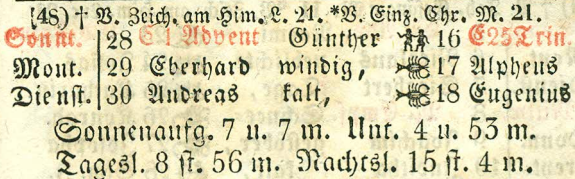 (48) † V. Zeich. am Him. L. 21. *V. Einz. Chr. M. 21.
Sonnt. 28 E 1 Advent Günther 16 E25Trin.
Mont. 29 Eberhard windig, 17 Alpheus
Dienst. 30 Andreas kalt, 18 Eugenius
Sonnenaufg. 7 u. 7 m. Unt. 4 u. 53 m.
Tagesl. 8 st. 56 m. Nachtsl. 15 st. 4 m.